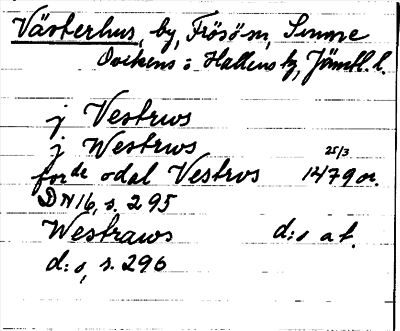 Västerhus, by, Frösö sn, Sunne
Ovikens o Hallens tg, Jämtl. l.
j Vestrws
j Westrws
for.de odal Vestrvs 25/3 1479 or.
DN 16, s. 295
Westraws d:s a f.
d:o, s. 296